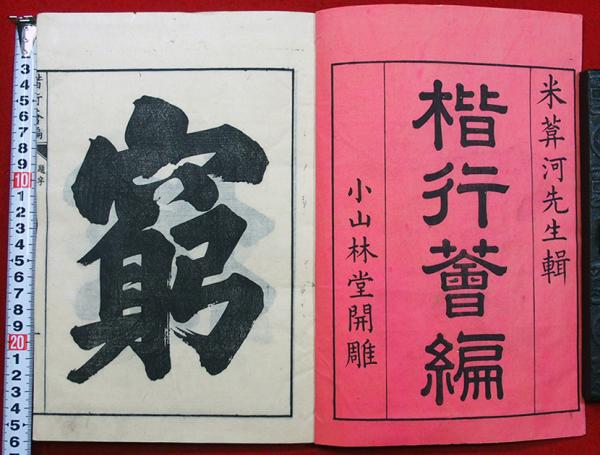 米葊河先生輯
楷行薈編
小山林堂開雕
窮
楷行薈編
題字
一
3
4
5
6
7
8
9
10
1
2
3
4
5
6
7
8
9
20
1
2
3
4
5
6